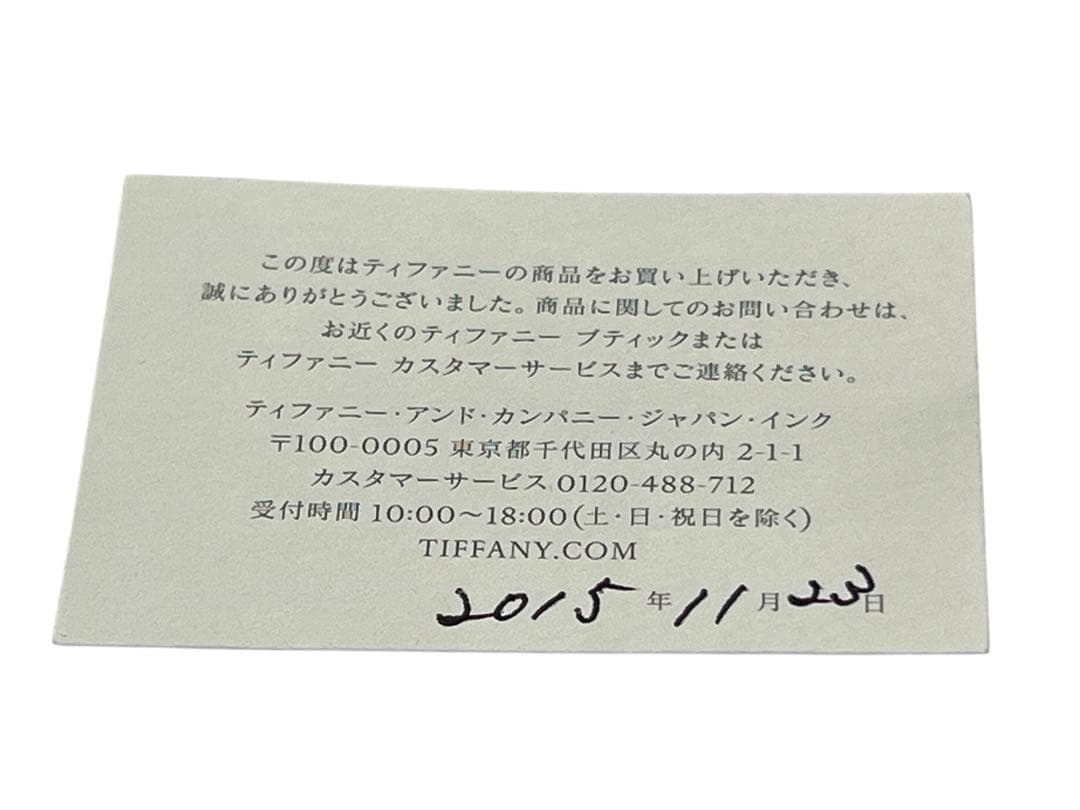 この度はティファニーの商品をお買い上げいただき、
誠にありがとうございました。商品に関してのお問い合わせは、
お近くのティファニー ブティックまたは
ティファニー カスタマーサービスまでご連絡ください。
ティファニー・アンド・カンパニー・ジャパン・インク
〒100-0005 東京都千代田区丸の内 2-1-1
カスタマーサービス 0120-488-712
受付時間 10:00〜18:00(土・日・祝日を除く)
TIFFANY.COM
2015年11月23日